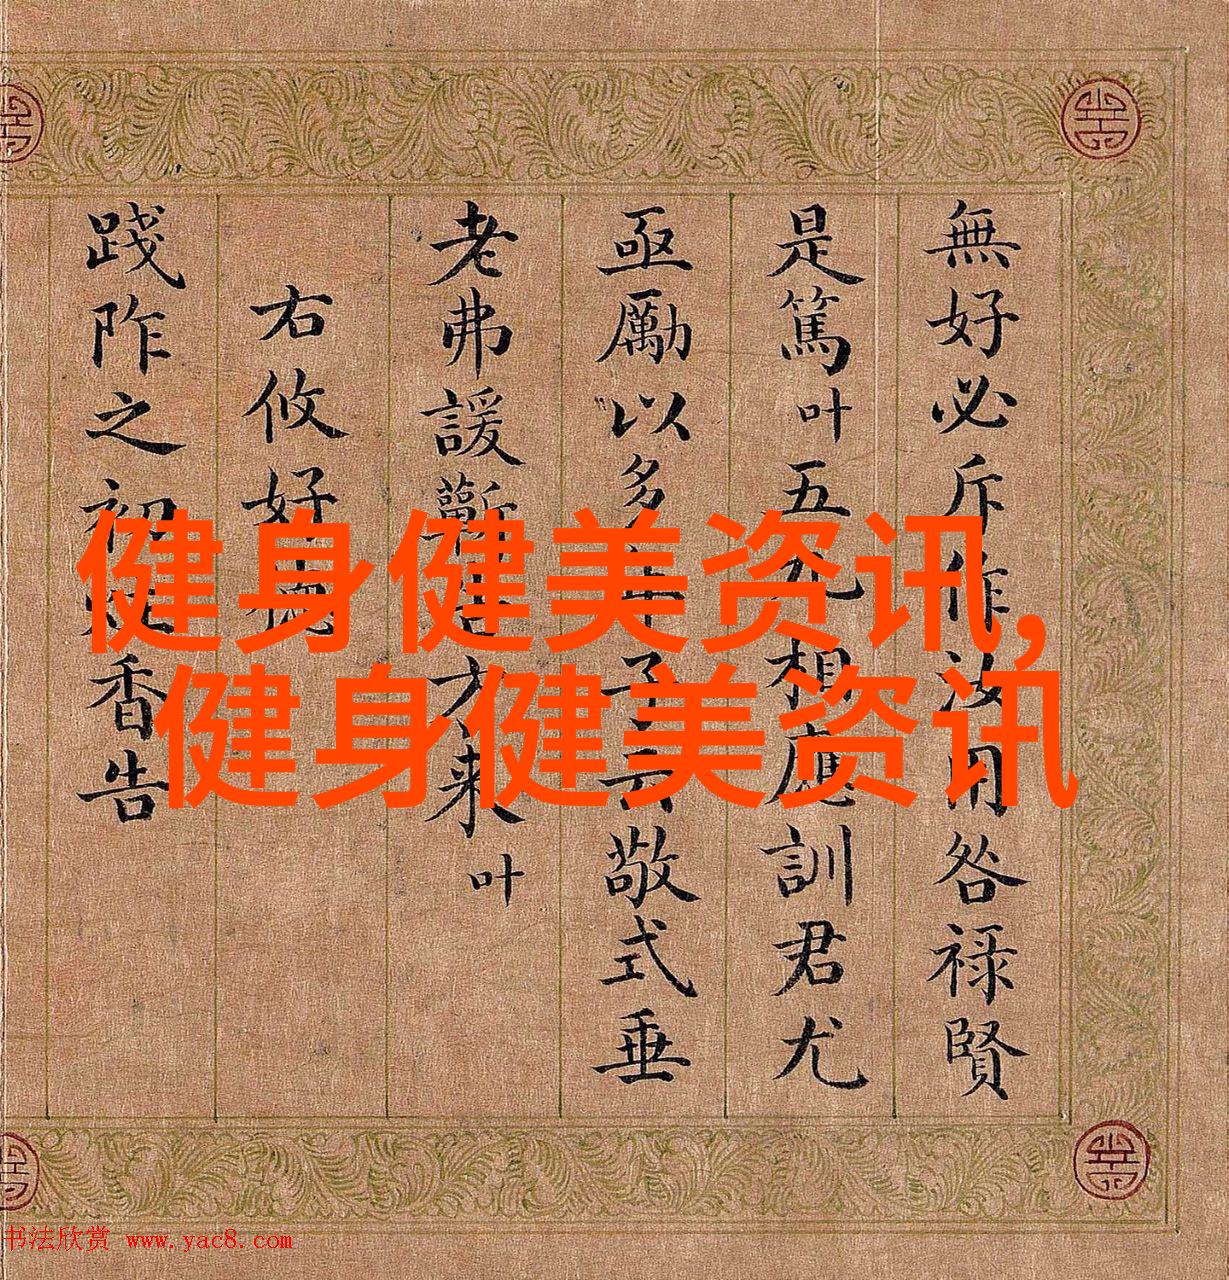 無好必斥作汝用咎禄賢
是篤叶五九相應訓君尤
亟勵以多年予敬式垂
老弗諼蘄告方来叶
右攸好德
踐阼之初香告
健身健美资讯,
健身健美资讯
书法欣赏 www.yac8.com